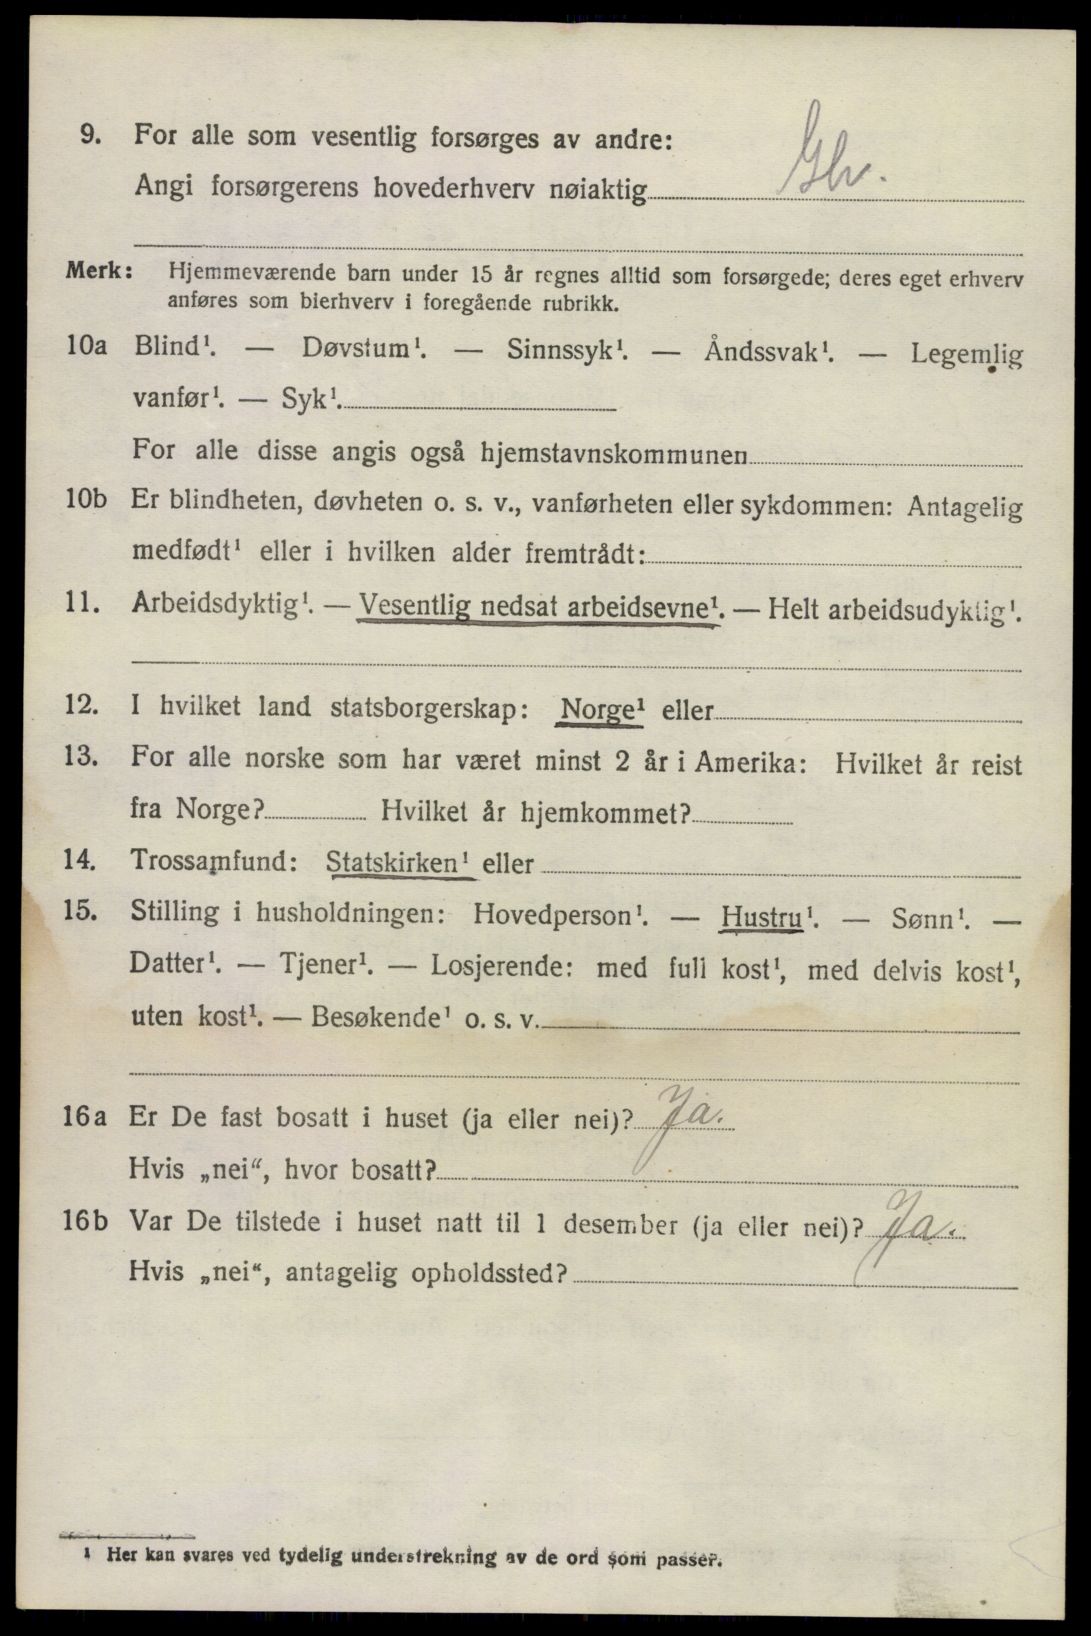 9. For alle som vesentlig forsørges av andre:
Angi forsørgerens hovederhverv nøiaktig
Merk: Hjemmeværende barn under 15 år regnes alltid som forsørgede; deres eget erhverv
anføres som bierhverv i foregående rubrikk.
10a Blind¹. — Døvstum¹. — Sinnssyk¹. — Åndssvak¹. — Legemlig
vanfør¹. — Syk¹.
For alle disse angis også hjemstavnskommunen
10b Er blindheten, døvheten o. s. v., vanførheten eller sykdommen: Antagelig
medfødt¹ eller i hvilken alder fremtrådt:
11. Arbeidsdyktig¹. — Vesentlig nedsat arbeidsevne¹. — Helt arbeidsudyktig¹.
12. I hvilket land statsborgerskap: Norge¹ eller
13. For alle norske som har været minst 2 år i Amerika: Hvilket år reist
fra Norge? Hvilket år hjemkommet?
14. Trossamfund: Statskirken¹ eller
15. Stilling i husholdningen: Hovedperson¹. — Hustru¹. — Sønn¹. —
Datter¹. — Tjener¹. — Losjerende: med full kost¹, med delvis kost¹,
uten kost¹. — Besøkende¹ o. s. v.
16a Er De fast bosatt i huset (ja eller nei)? Ja.
Hvis „nei“, hvor bosatt?
16b Var De tilstede i huset natt til 1 desember (ja eller nei)? Ja.
Hvis „nei“, antagelig opholdssted?
¹ Her kan svares ved tydelig understrekning av de ord som passer.